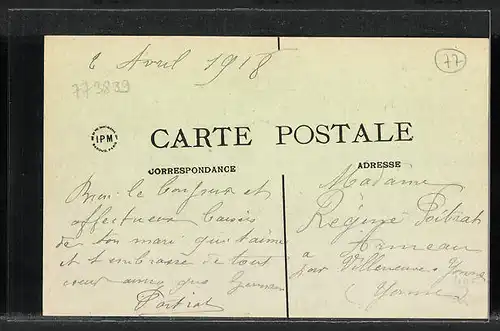 8 Avril 1918
77
773839
IPM
CARTE POSTALE
CORRESPONDANCE
ADRESSE
Bien le bonjour et
affectueux baisés
de ton mari qui t'aime
et t'embrasse de tout
coeur ainsi que Germaine
Poitrat
Madame
Régine Poitrat
Armeau
a par Villeneuve s Yonne
(Yonne)